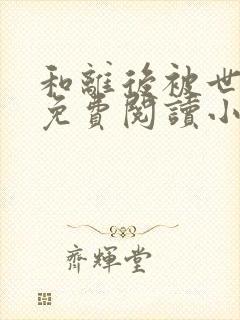 和離後被世
免費閱讀小
齊輝堂